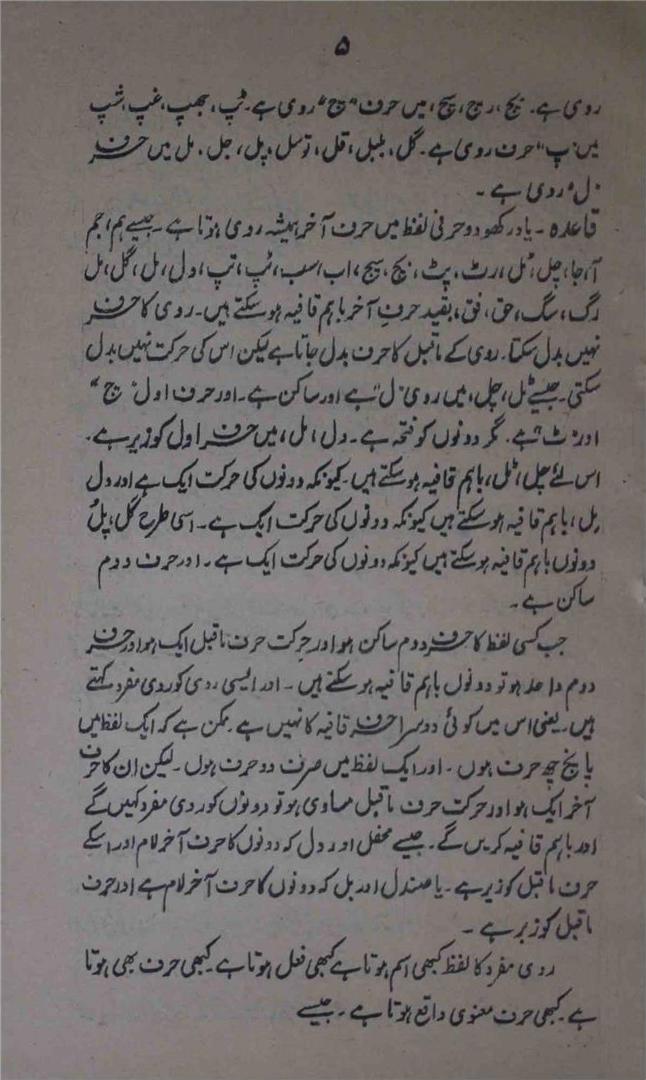 ۵
روی ہے۔ بچ، رچ، سچ، میں حرف "چ" روی ہے۔ ٹپ، بھپ، غپ، شپ
میں "پ" حرف روی ہے۔ گل، بلبل، قل، توسل، پل، جل، مل میں حرف
"ل" روی ہے۔
قاعدہ۔ یاد رکھو دو حرفی لفظ میں حرف آخر ہمیشہ روی ہوتا ہے۔ جیسے ہم، جم
آ، جا، چل، ٹل، رٹ، پٹ، بچ، سچ، اب، سب، ٹپ، تپ، دل، مل، گل، مل
رگ، سگ، حق، فق، بقید حرف آخر باہم قافیہ ہو سکتے ہیں۔ روی کا حرف
نہیں بدل سکتا۔ روی کے ماقبل کا حرف بدل جاتا ہے لیکن اس کی حرکت نہیں بدل
سکتی۔ جیسے ٹل، چل، میں روی "ل" ہے اور ساکن ہے۔ اور حرف اول "چ"
اور "ٹ" ہے۔ مگر دونوں کو فتحہ ہے۔ دل، مل، میں حرف اول کو زیر ہے۔
اس لئے چل، ٹل، باہم قافیہ ہو سکتے ہیں۔ کیونکہ دونوں کی حرکت ایک ہے اور دل
مِل، باہم قافیہ ہو سکتے ہیں کیونکہ دونوں کی حرکت ایک ہے۔ اسی طرح گل، پُل
دونوں باہم قافیہ ہو سکتے ہیں کیونکہ دونوں کی حرکت ایک ہے۔ اور حرف دوم
ساکن ہے۔
جب کسی لفظ کا حرف دوم ساکن ہو اور حرکت حرف ماقبل ایک ہو اور حرف
دوم واحد ہو تو دونوں باہم قافیہ ہو سکتے ہیں۔ اور ایسی روی کو روی مفرد کہتے
ہیں۔ یعنی اس میں کوئی دوسرا حرف قافیہ کا نہیں ہے۔ ممکن ہے کہ ایک لفظ میں
پانچ چھ حرف ہوں۔ اور ایک لفظ میں صرف دو حرف ہوں۔ لیکن ان کا حرف
آخر ایک ہو اور حرکت حرف ماقبل مساوی ہو تو دونوں کو روی مفرد کہیں گے
اور باہم قافیہ کریں گے۔ جیسے محفل اور دل کہ دونوں کا حرف آخر لام اور اسکے
حرف ماقبل کو زیر ہے۔ یا صندل اور بل کہ دونوں کا حرف آخر لام ہے اور حرف
ماقبل کو زبر ہے۔
روی مفرد کا لفظ کبھی اسم ہوتا ہے کبھی فعل ہوتا ہے۔ کبھی حرف بھی ہوتا
ہے۔ کبھی حرف معنوی واقع ہوتا ہے۔ جیسے